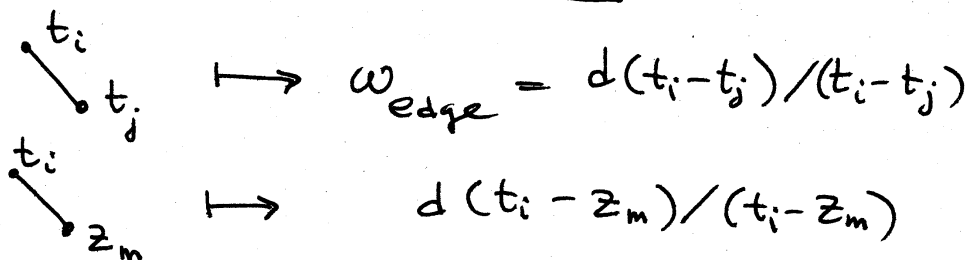 t_i
t_j ⟼ ω_edge = d(t_i-t_j)/(t_i-t_j)
t_i
z_m ⟼ d(t_i - z_m)/(t_i-z_m)